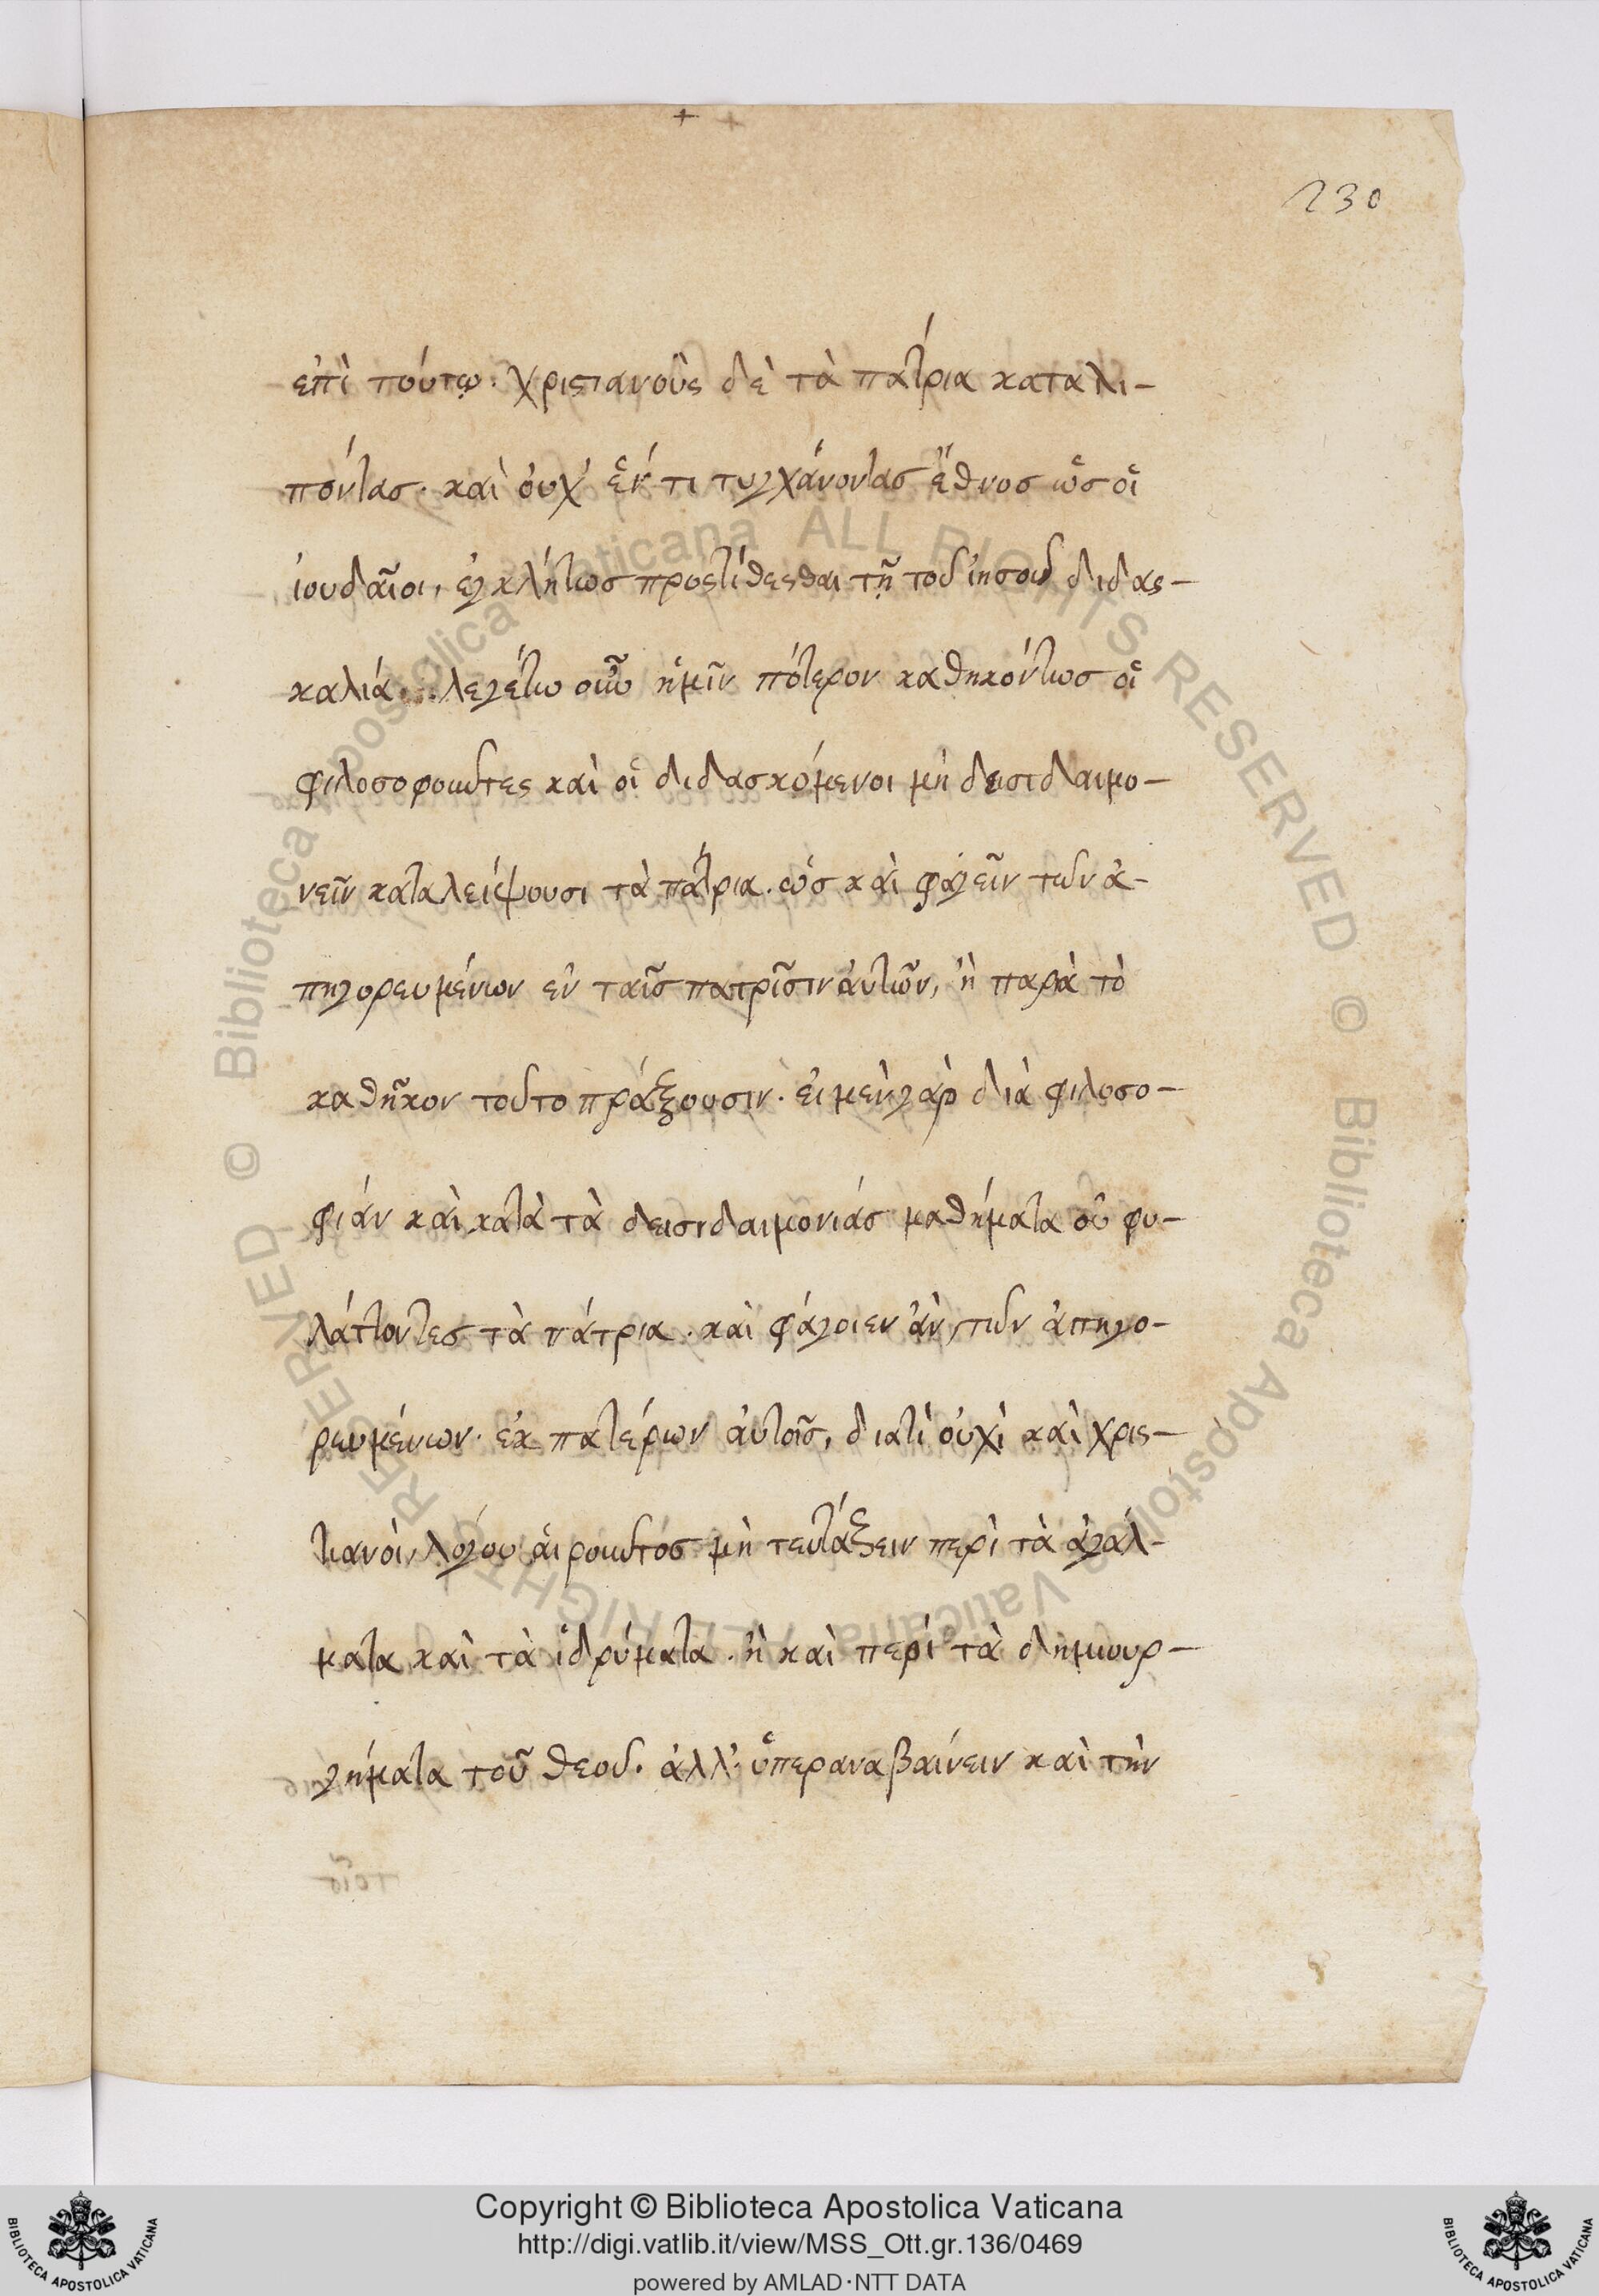 230
ἐπὶ τούτῳ· χριστιανοὺς δὲ τὰ πάτρια καταλι-
πόντας· καὶ οὐχ' ἕν τι τυγχάνοντας ἔθνος ὡς οἱ
ἰουδαῖοι, ἐγκλήτως προστίθεσθαι τῇ τοῦ ἰησοῦ διδασ-
καλία. λεγέτω οὖν ἡμῖν πότερον καθηκόντως οἱ
φιλοσοφοῦντες καὶ οἱ διδασκόμενοι μὴ δεισιδαιμο-
νεῖν καταλείψουσι τὰ πάτρια. ὡς καὶ φαγεῖν τῶν ἀ-
πηγορευμένων ἐν ταῖς πατρίσιν αὐτῶν, ἢ παρὰ τὸ
καθῆκον τοῦτο πράξουσιν· εἰ μὲν γὰρ διὰ φιλοσο-
φίαν καὶ κατὰ τὰ δεισιδαιμονίας μαθήματα οὐ φυ-
λάττοντες τὰ πάτρια. καὶ φάγοιεν ἂν, τῶν ἀπηγο-
ρευμένων· ἐκ πατέρων αὐτοῖς, διατί οὐχὶ καὶ χρισ-
τιανοὶ, λόγου αἱροῦντος μὴ τευτάζειν περὶ τὰ ἀγάλ-
ματα καὶ τὰ ἱδρύματα. ἢ καὶ περὶ τὰ δημιουρ-
γήματα τοῦ θεοῦ. ἀλλ' ὑπεραναβαίνειν καὶ τὴν
Copyright © Biblioteca Apostolica Vaticana
http://digi.vatlib.it/view/MSS_Ott.gr.136/0469
powered by AMLAD·NTT DATA
BIBLIOTECA APOSTOLICA VATICANA
BIBLIOTECA APOSTOLICA VATICANA
© Biblioteca Apostolica Vaticana ALL RIGHTS RESERVED
© Biblioteca Apostolica Vaticana ALL RIGHTS RESERVED